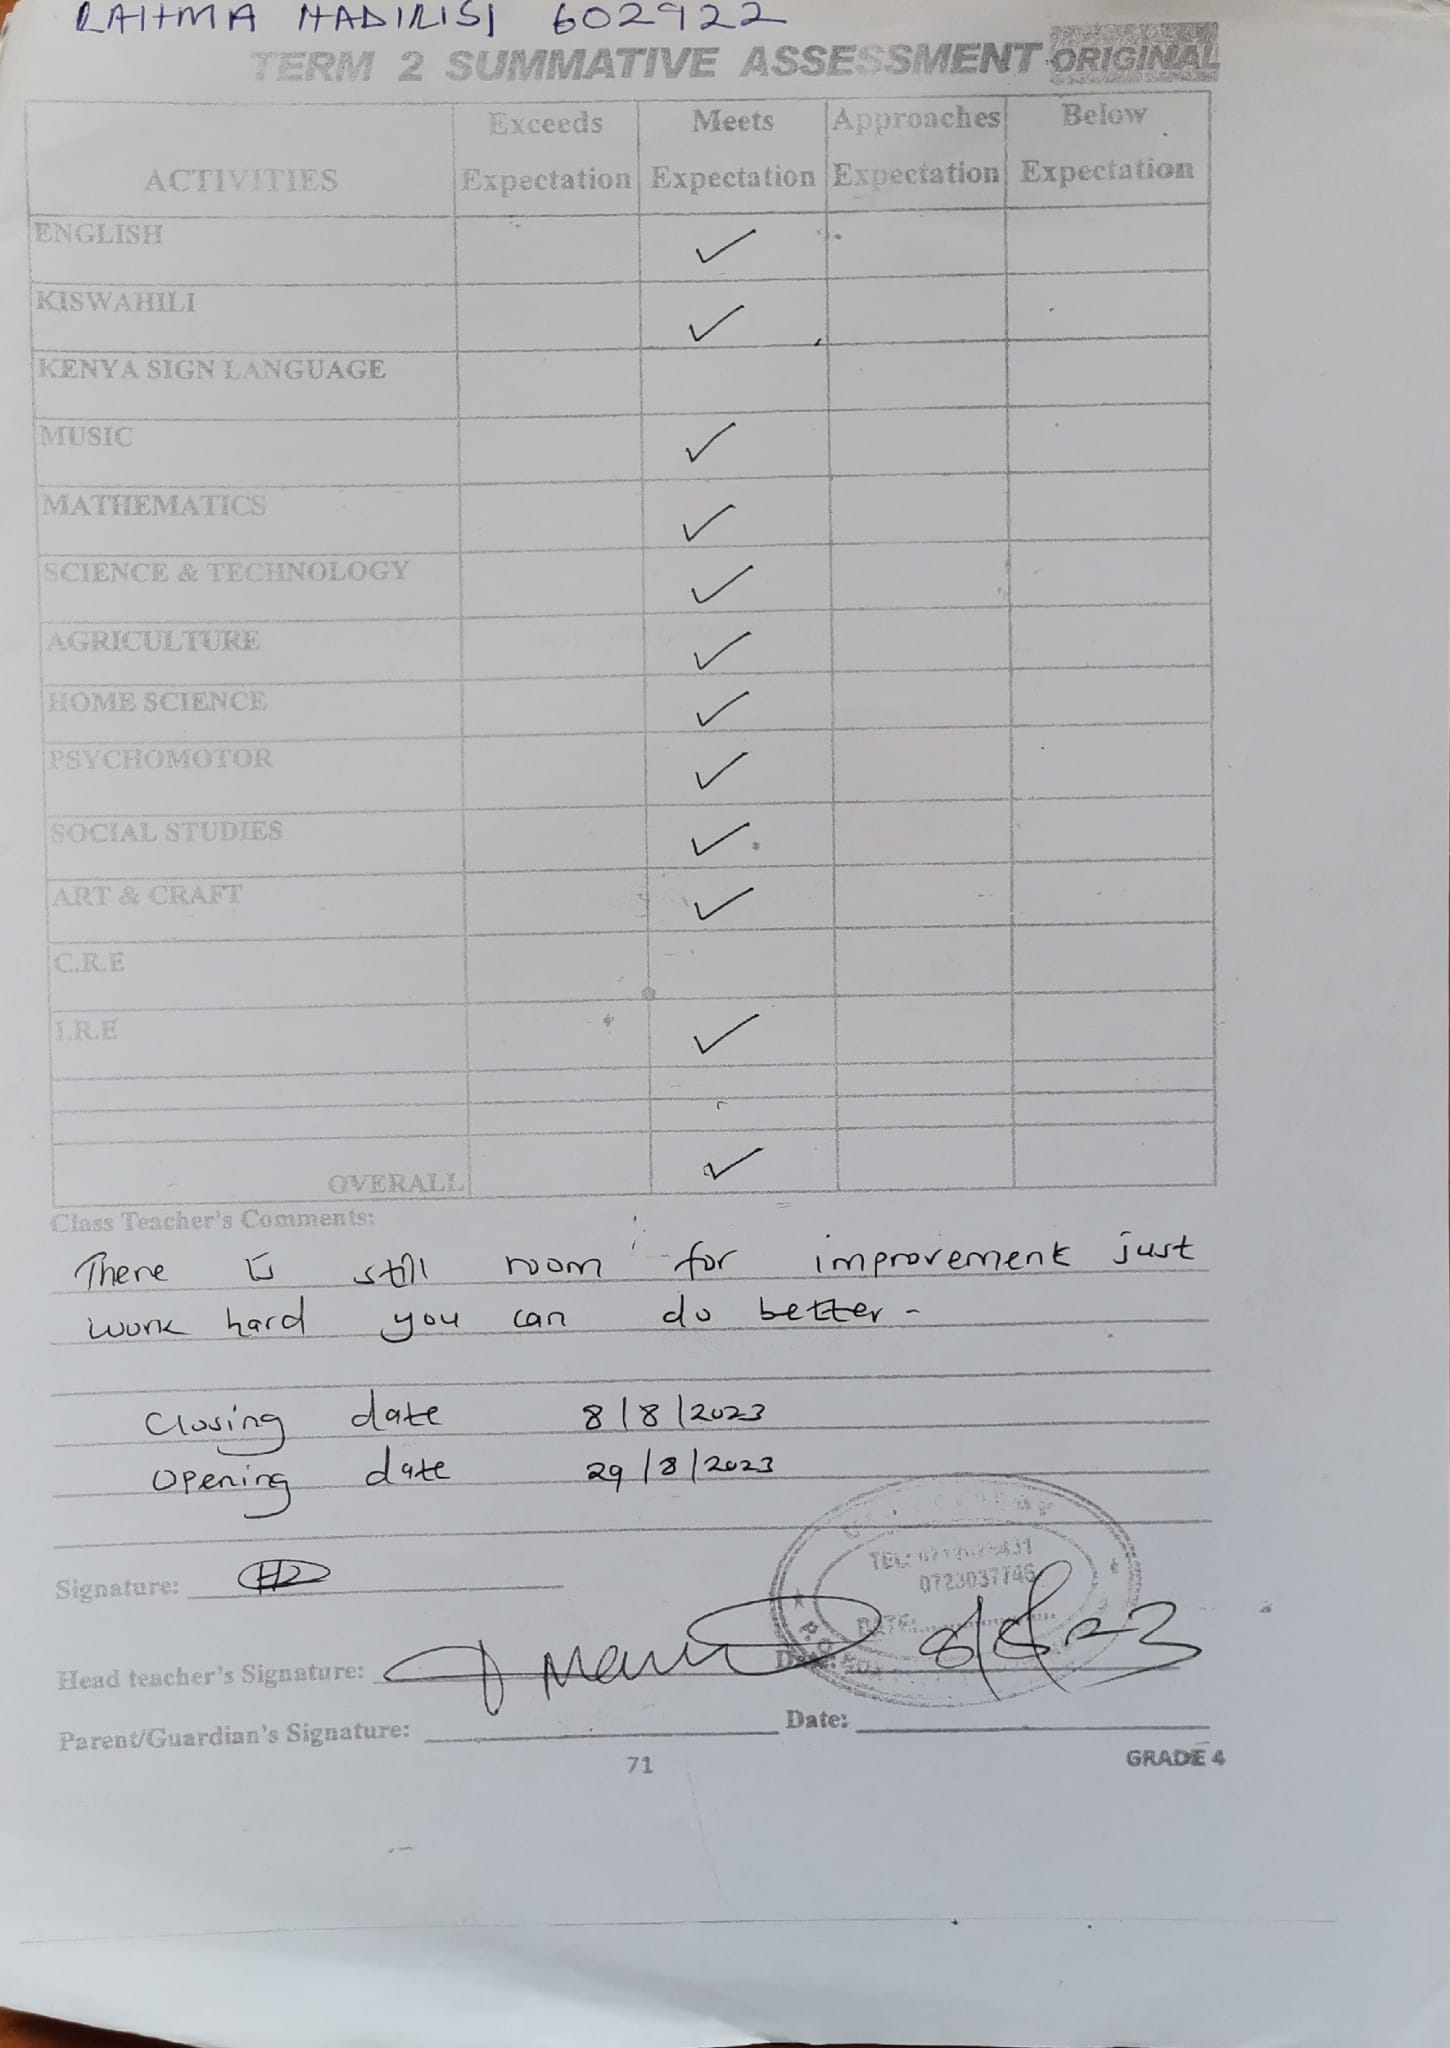 RAHMA HADIRISI 602922
TERM 2 SUMMATIVE ASSESSMENT ORIGINAL
ACTIVITIES Exceeds Expectation Meets Expectation Approaches Expectation Below Expectation
ENGLISH ✓
KISWAHILI ✓
KENYA SIGN LANGUAGE
MUSIC ✓
MATHEMATICS ✓
SCIENCE & TECHNOLOGY ✓
AGRICULTURE ✓
HOME SCIENCE ✓
PSYCHOMOTOR ✓
SOCIAL STUDIES ✓
ART & CRAFT ✓
C.R.E
I.R.E ✓
OVERALL ✓
Class Teacher's Comments:
There is still room for improvement just
work hard you can do better -
Closing date 8/8/2023
Opening date 29/8/2023
TEL:
0723037746
DATE:
Signature:
Head teacher's Signature: Date: 8/8/23
Parent/Guardian's Signature: Date:
71 GRADE 4